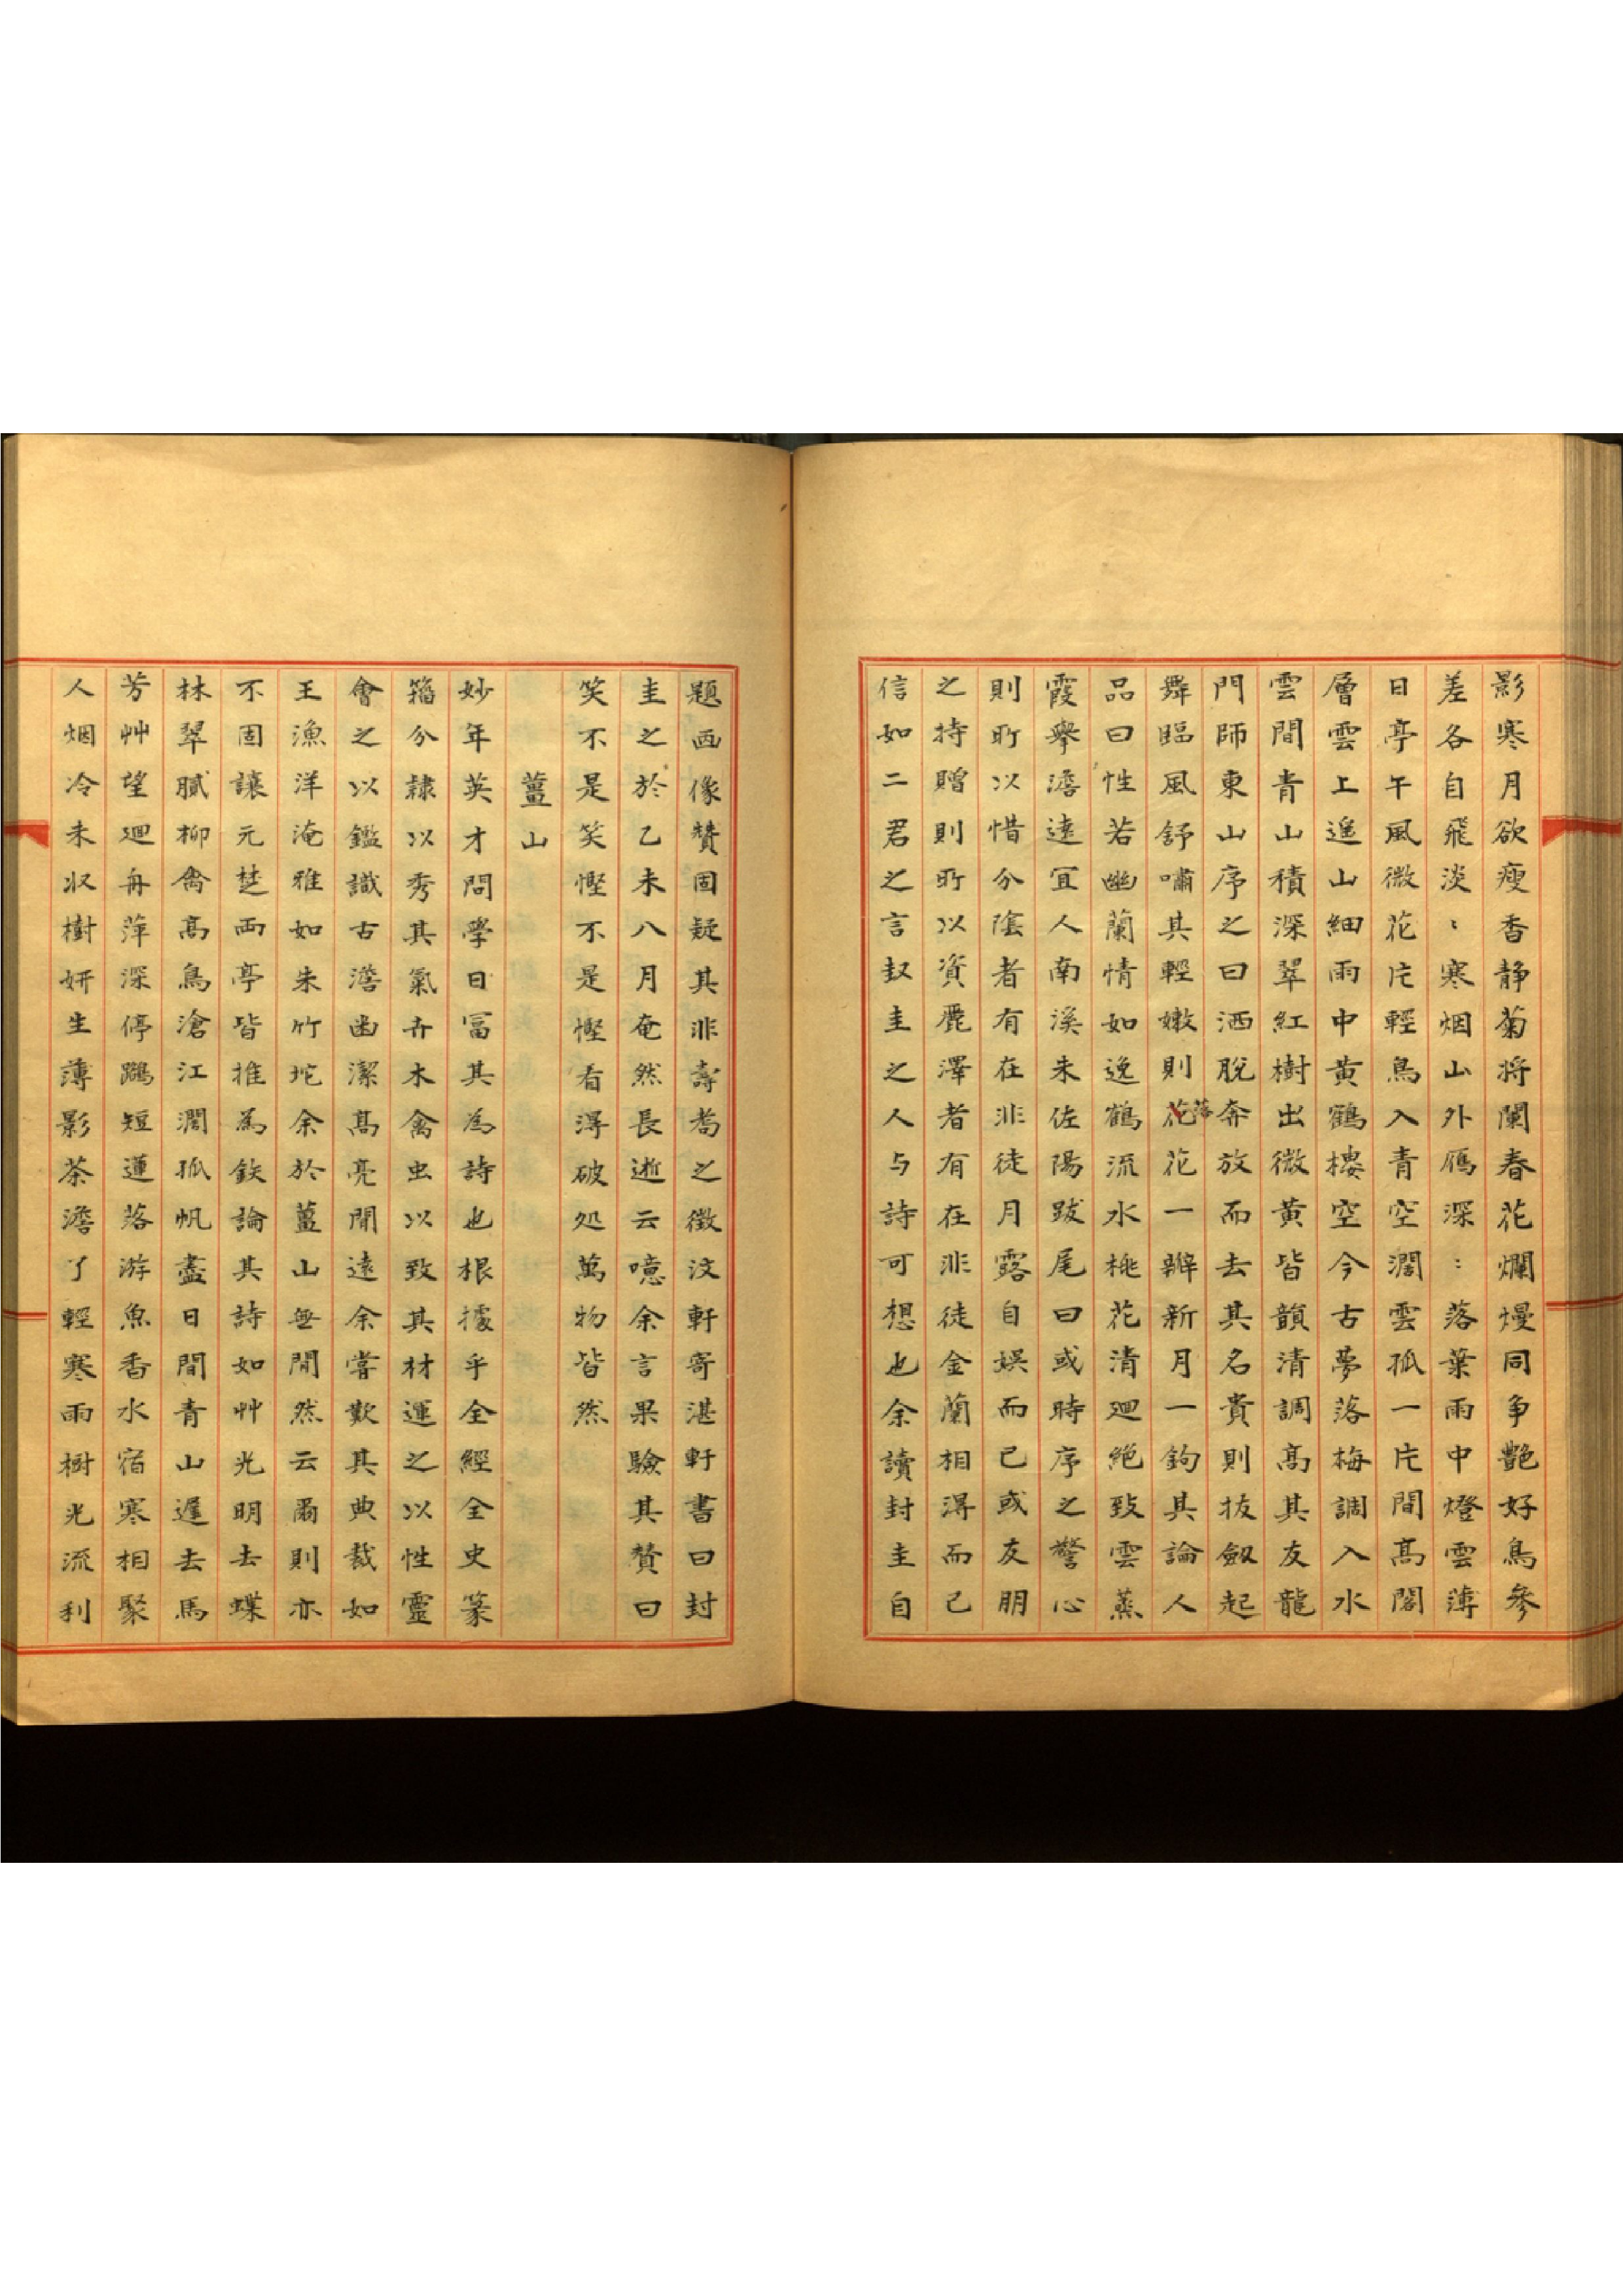 影寒月欲瘦香静菊将闌春花爛熳同争艶好鳥參
差各自飛淡〻寒烟山外鴈深〻落葉雨中燈雲薄
日亭午風微花片輕鳥入青空濶雲孤一片間髙閣
層雲上遙山細雨中黄鶴樓空今古夢落梅調入水
雲間青山積深翠紅樹出微黄皆韻清調髙其友龍
門師東山序之曰洒脫奔放而去其名貴則拔劔起
舞臨風舒嘯其輕嫩則落花一瓣新月一鉤其論人
品曰性若幽蘭情如逸鶴流水桃花清廻絶致雲蒸
霞擧澹遠宜人南溪朱佐陽跋尾曰或時序之警心
則所以惜分陰者有在非徒月露自娯而已或友朋
之持贈則所以資麗澤者有在非徒金蘭相淂而已
信如二君之言封圭之人与詩可想也余讀封圭自
題画像贊固疑其非壽耇之徵汶軒寄湛軒書曰封
圭之於乙未八月奄然長逝云噫余言果驗其贊曰
笑不是笑慳不是慳看淂破処萬物皆然
薑山
妙年英才問學日冨其爲詩也根據乎全經全史篆
籒分隷以秀其氣卉木禽虫以致其材運之以性靈
會之以鑑識古澹幽潔髙亮閒遠余嘗歎其典裁如
王漁洋淹雅如朱竹坨余於薑山無間然云爾則亦
不固讓元楚両亭皆推爲鉄論其詩如艸光明去蝶
林翠膩柳禽髙鳥滄江濶孤帆盡日間青山遲去馬
芳艸望廻舟萍深停鷁短蓮落游魚香水宿寒相聚
人烟冷未収樹妍生薄影茶澹了輕寒雨樹光流利